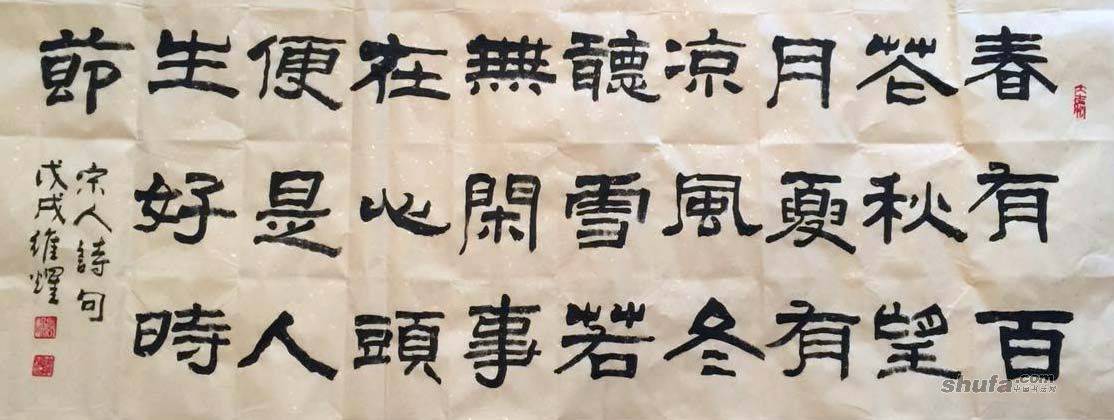 春有百
花秋望
月夏有
涼風冬
聽雪若
無閑事
在心頭
便是人
生好時
節
宋人詩句
戊戌維燿
shufa.com